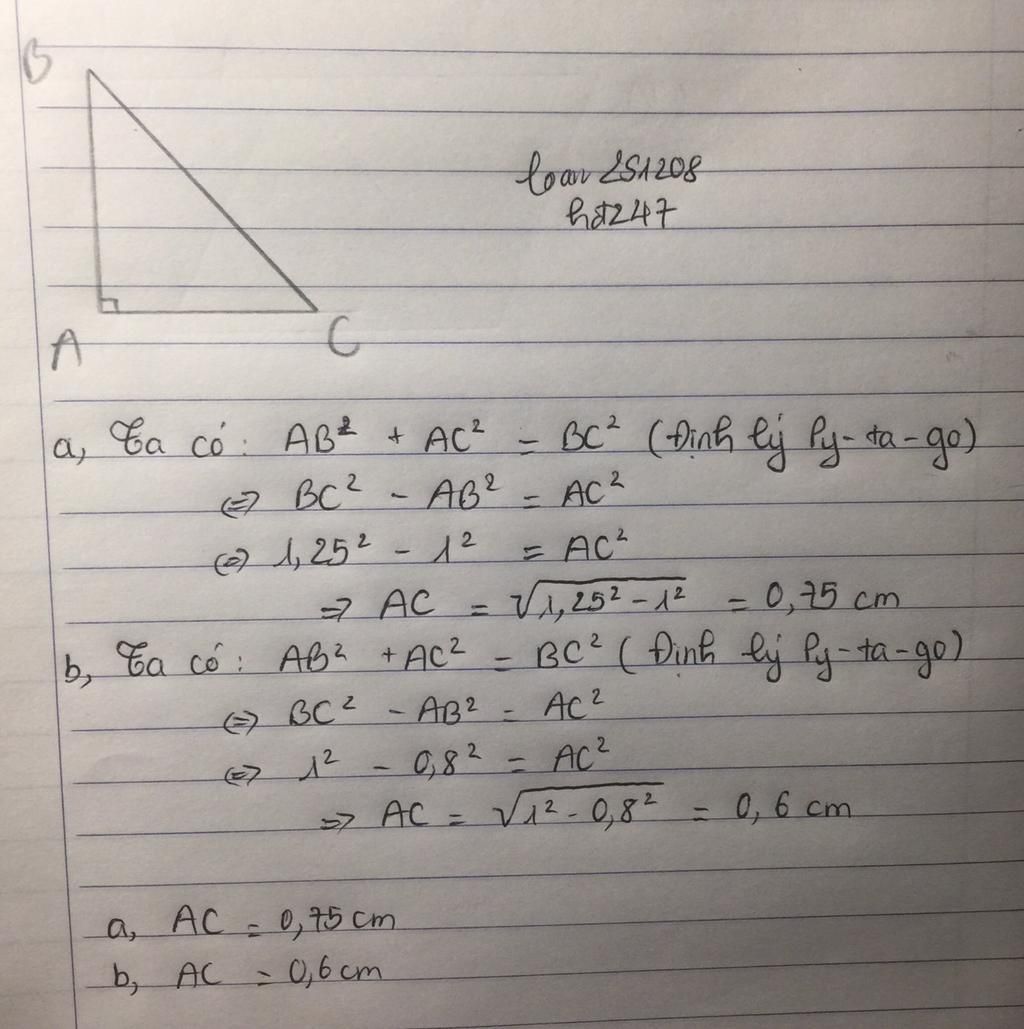 B
loan251208
hst247
A
C
a, Ta có: AB² + AC² = BC² (Định lý Py-ta-go)
⇔ BC² - AB² = AC²
⇔ 1,25² - 1² = AC²
⇒ AC = √1,25² - 1² = 0,75 cm
b, Ta có: AB² + AC² = BC² (Định lý Py-ta-go)
⇔ BC² - AB² = AC²
⇔ 1² - 0,8² = AC²
⇒ AC = √1² - 0,8² = 0,6 cm
a, AC = 0,75 cm
b, AC = 0,6 cm